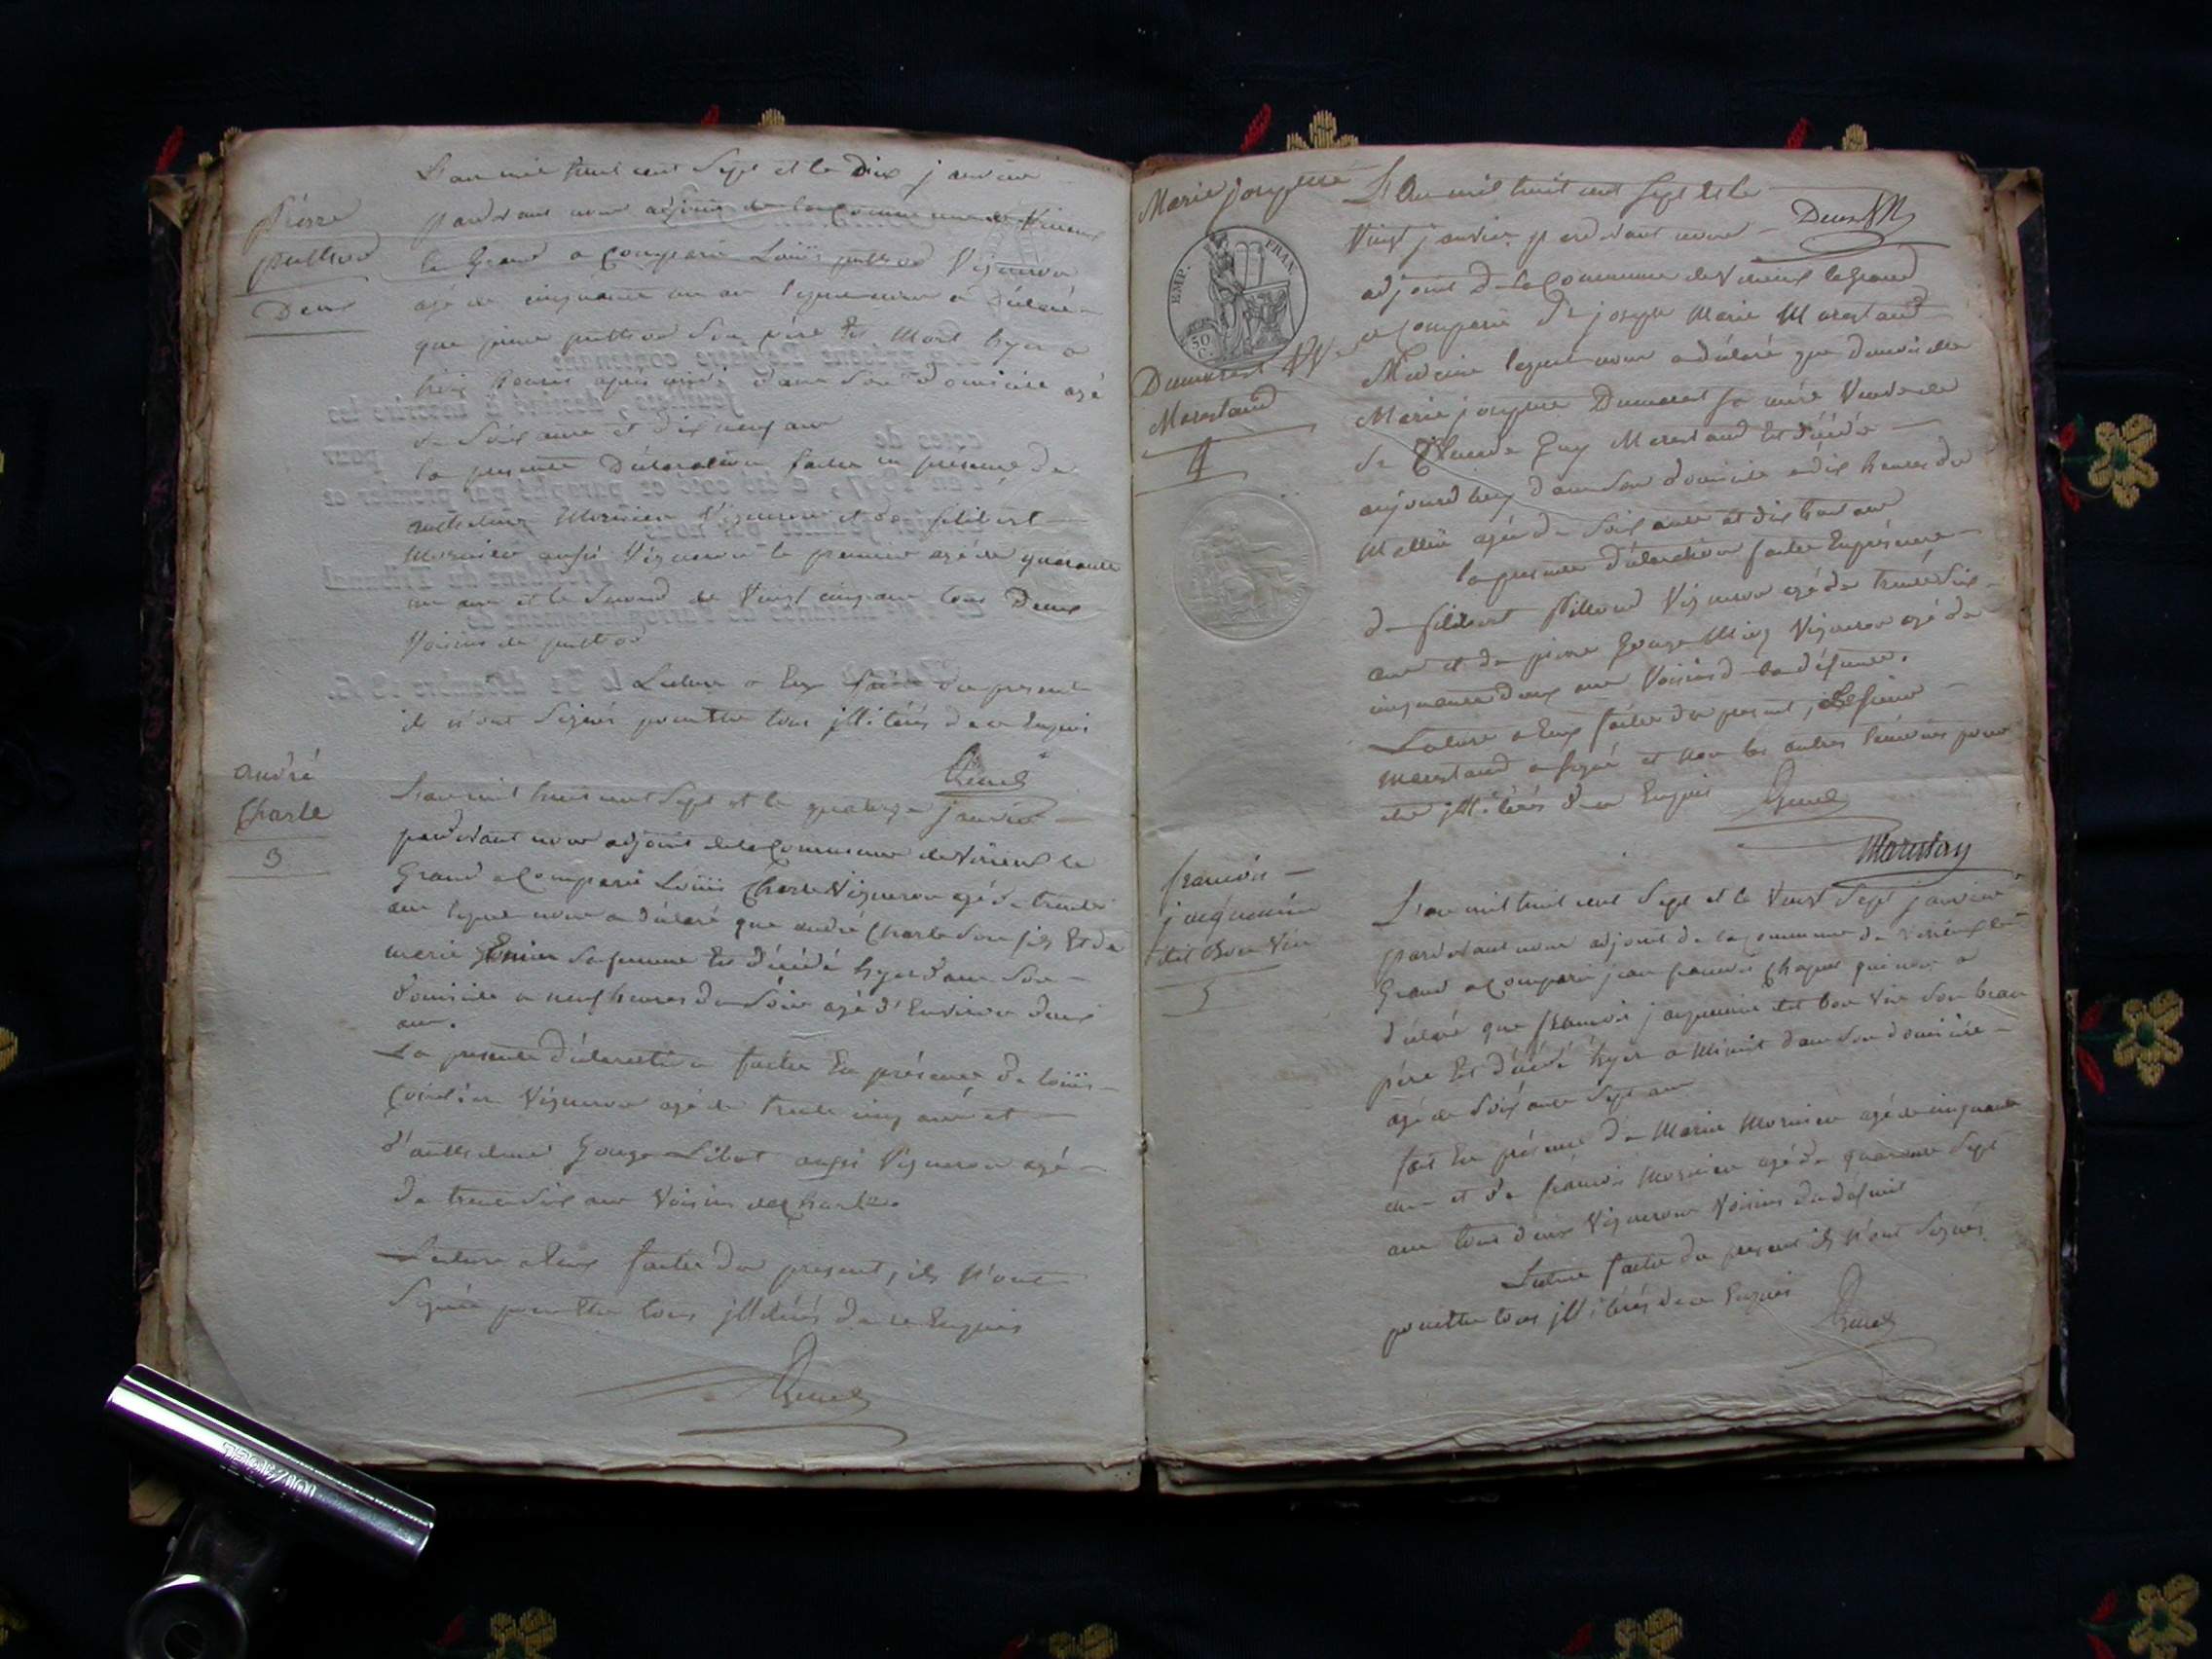 L'an mil huit cent sept et le dix janvier
Pierre
pardevant nous adjoint de la Commune de Virieux
le Grand a Comparu Louis Vigneron
Deux
agé de cinquante un an lequel nous a déclaré
que pierre son père Est Mort hyer a
trois heures après midi dans son Domicile agé
de Soixante et dix neuf ans
la presente Déclaration faitte en présence de
anthelme Mornieu Vigneron et de filibert
Mornieu aussi Vigneron le premier agé de quarante
un ans et le Second de Vingt cinq ans tous Deux
Voisins de
Lecture a Eux faite du present
ils n'ont Signés pour Etre tous illitérés de ce Enquis
andré
Charle
3
L'an mil huit cent Sept et le quatorze janvier
pardevant nous adjoint de la Commune de Virieux le
Grand a Comparu Louis Charle Vigneron agé de trente
ans lequel nous a déclaré que andré Charle Son fils Et de
marie sa femme Est décédé hyer dans Son
domicile a neuf heures du Soir agé d'Environ deux
ans.
La presente déclaration faitte En présence de louis
Vigneron agé de trente cinq ans et
d'anthelme Gouge aussi Vigneron agé
de trente Six ans Voisins de Charle.
Lecture a Eux faitte du present, ils n'ont
Signés pour Etre tous illitérés de ce Enquis
Marie josephte
EMP. FRAN.
50 C.
Dumarest Vve
Marestand
4
L'An mil huit cent Sept et le
Deux
Vingt janvier pardevant nous
adjoint De la Commune de Virieux le Grand
a Comparu Sr joseph Marie Marestand
Medecin lequel nous a déclaré que demoiselle
Marie josephte Dumarest sa mère Veuve de
Sr Claude Guy Marestand Est décédée
aujourd'huy dans Son domicile a dix heures du
Mattin agée de Soixante et dix huit ans
la presente déclaration faitte En présence
de filibert Vigneron agé de trente Six
ans et de pierre Gouge Vigneron agé de
cinquante deux ans Voisins de la défunte.
Lecture a Eux faitte du present, le Sieur
marestand a signé et non les autres témoins pour
etre illitérés de ce Enquis
Marestan
francois
jacquemin
dit Bon Vin
5
L'an mil huit cent Sept et le Vingt Sept janvier
pardevant nous adjoint de la Commune de Virieux le
Grand a Comparu jean francois qui nous a
déclaré que francois jacquemin dit bon Vin Son beau
père Est décédé hyer a Minuit dans Son domicile
agé de Soixante Sept ans
fait En présence de Marin Mornieu agé de cinquante
ans et de francois Mornieu agé de quarante Sept
ans tous deux Vignerons Voisins du défunt
Lecture faitte du present ils n'ont Signés
pour Etre tous illitérés de ce Enquis